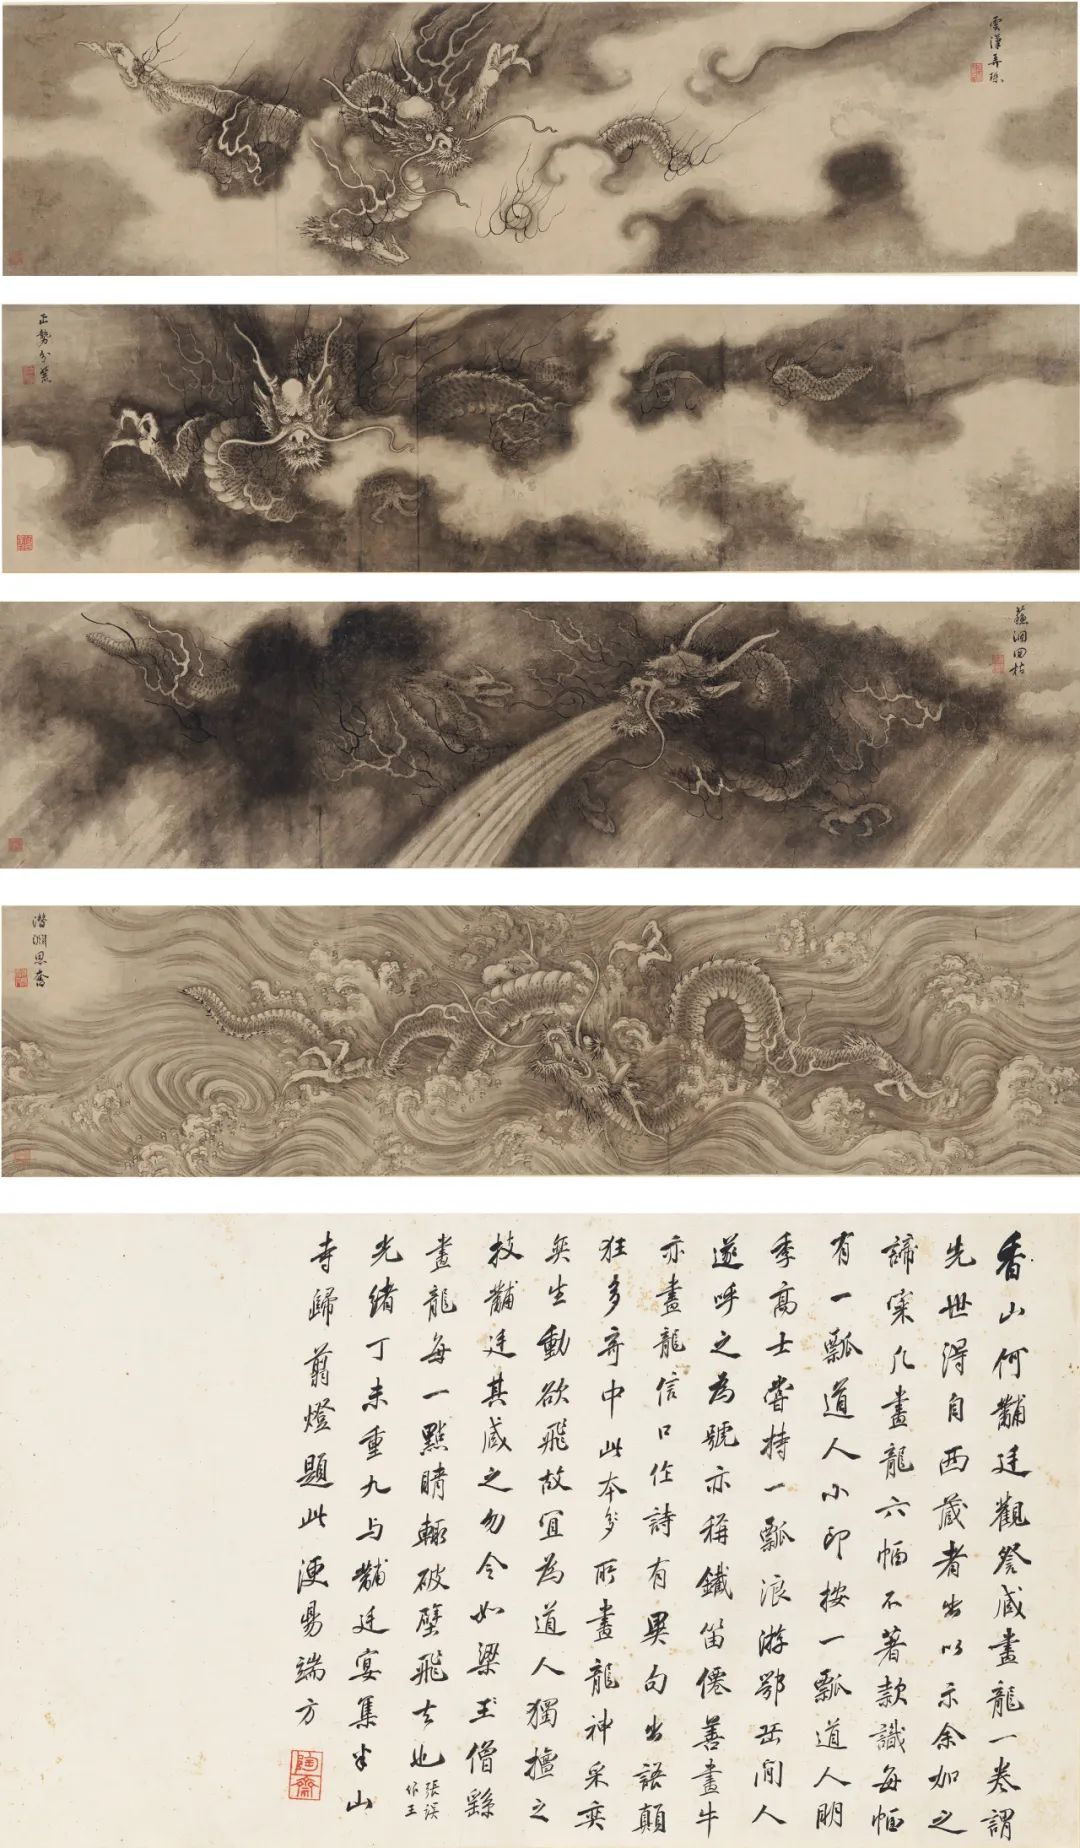 雲漢弄珠
正勢分鱗
蘇涸回枯
潛淵思奮
香山何黼廷觀詧咸畫龍一卷謂
先世得自西藏者出以示余加之
諦案凡畫龍六幅不著款識每幅
有一瓢道人小印按一瓢道人明
季高士嘗持一瓢浪游鄂岳間人
遂呼之為號亦稱鐵笛僊善畫牛
亦畫龍信口作詩有異句出語顛
狂多寄中此本所畫龍神采奕
奕生動欲飛故宜為道人獨擅之
技黼廷其咸之勿令如梁王僧繇
畫龍每一點睛輒破壁飛去也張誤作王
光緒丁未重九与黼廷宴集半山
寺歸翦燈題此浭易端方
陶齋